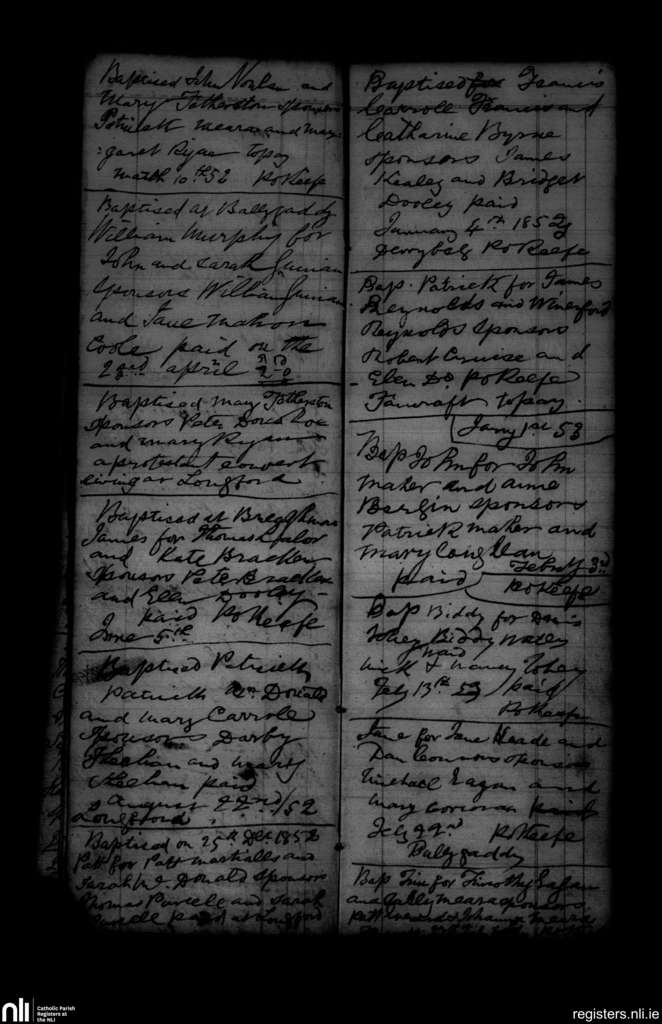 Baptised John Nowlan and
Mary Fetherston sponsors
Patrick Meara and Mar-
garet Ryan topay
March 10th 52 POKeefe
Baptised at Ballygaddy
William Murphy for
John and Sarah Guinan
Sponsors William Guinan
and Jane Mahon
Coole paid on the
22nd april 2-0
Baptised Mary Fetherston
sponsors Peter Donohoe
and mary Ryan
a protestant convert
living at Longford
Baptised at
James for Thomas Lalor
and Kate Bracken
Sponsors Peter Bracken
and Ellen Dooley
paid POKeefe
June 5th
Baptised Patrick
Patrick Mc Donald
and Mary Carrole
Sponsors Darby
Sheehan and mary
Sheehan paid
august 22nd/52
Longford
Baptised on 25th Dec 1852
Patt for Patt Marshalls and
Sarah Mc Donald Sponsors
Thomas Purcell and Sarah
Purcell paid at Longford
Baptised for Francis
Carrole Francis and
Catharine Byrne
sponsors James
Kealey and Bridget
Dooley paid
January 4th 1852
POKeefe
Bap. Patrick for James
Reynolds and Wineford
Reynolds Sponsors
Robert Cruise and
Ellen Do POKeefe
Fancroft topay.
Jany 1st 53
Bap John for John
Maher and anne
Bergin sponsors
Patrick Maher and
Mary Coughlan
Feb 3rd
paid POKeefe
Bap Biddy for Denis
Tohey Biddy
Mick & Nancy Tohey
Feby 13th 53 paid
POKeefe
Jane for Jane Meade and
Dan sponsors
Michael Eagan and
Mary Corcoran paid
Feby 22nd POKeefe
Ballygaddy
Bap Tim for Timothy Eagan
and Sally Meara sponsors
nli
Catholic Parish
Registers at
the NLI
registers.nli.ie